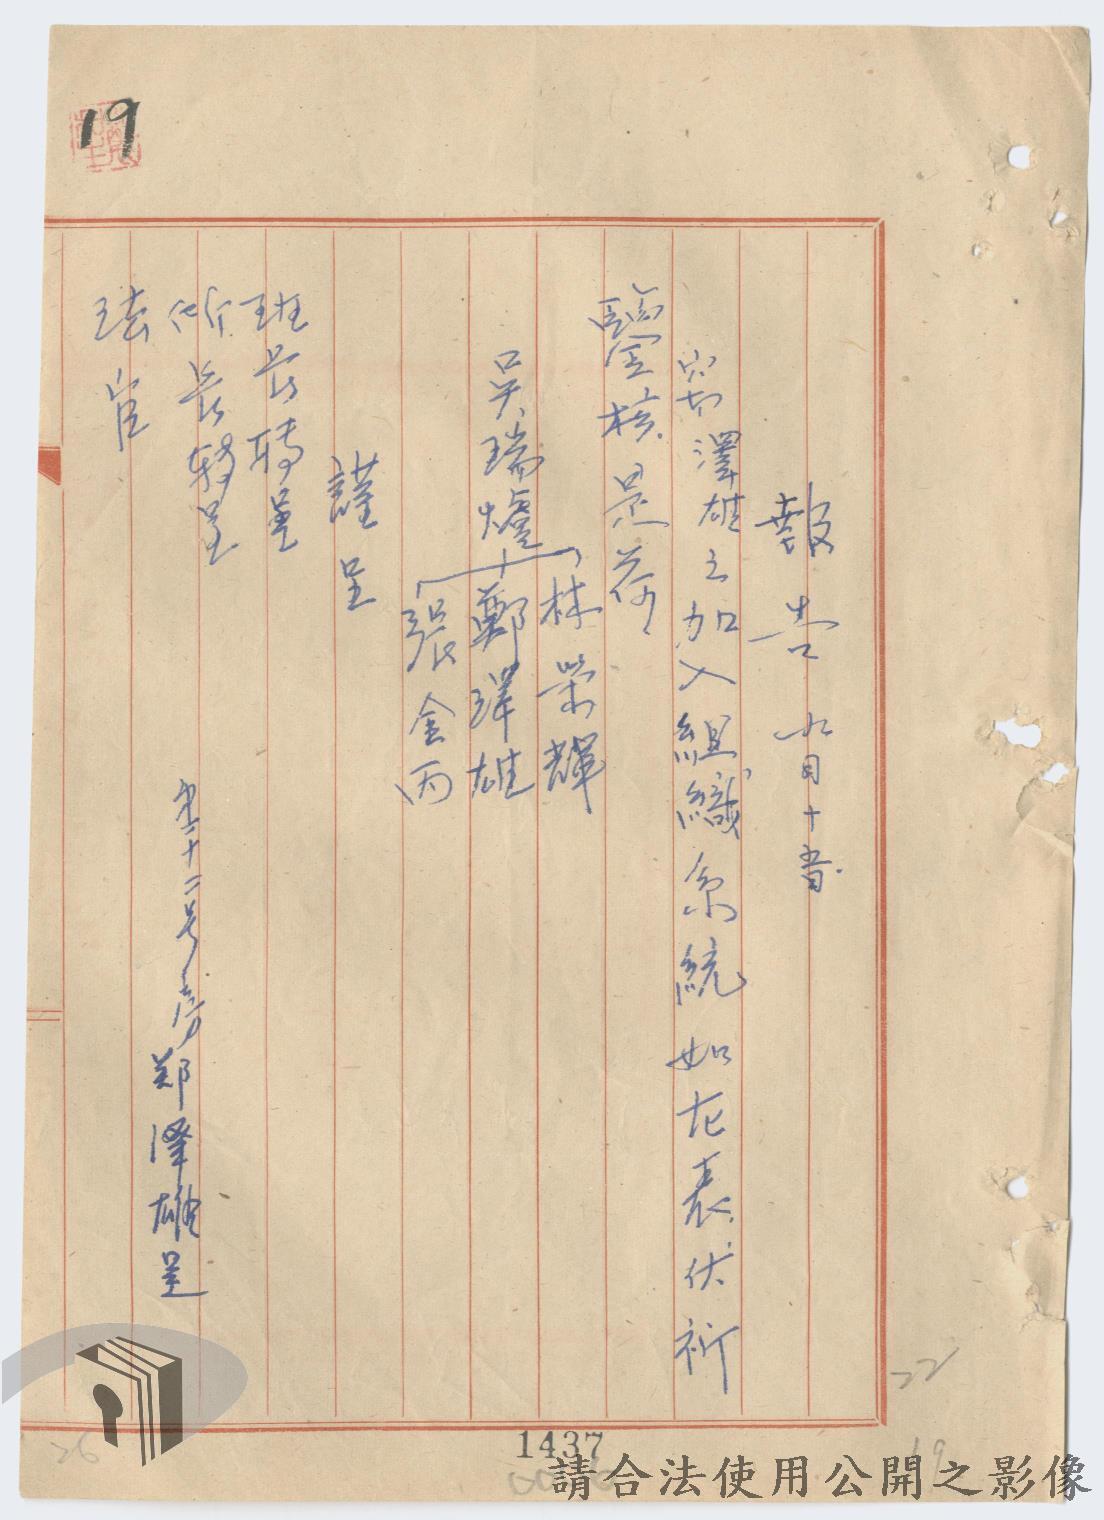 19
報告 九月十五日
竊澤雄之加入組織系統如左表伏祈
鑒核是荷
林榮輝
吳瑞爐 鄭澤雄
張金丙
謹呈
班長轉呈
所長轉呈
法官
第二十二号房
郑泽雄呈
1437
22
19
26
請合法使用公開之影像